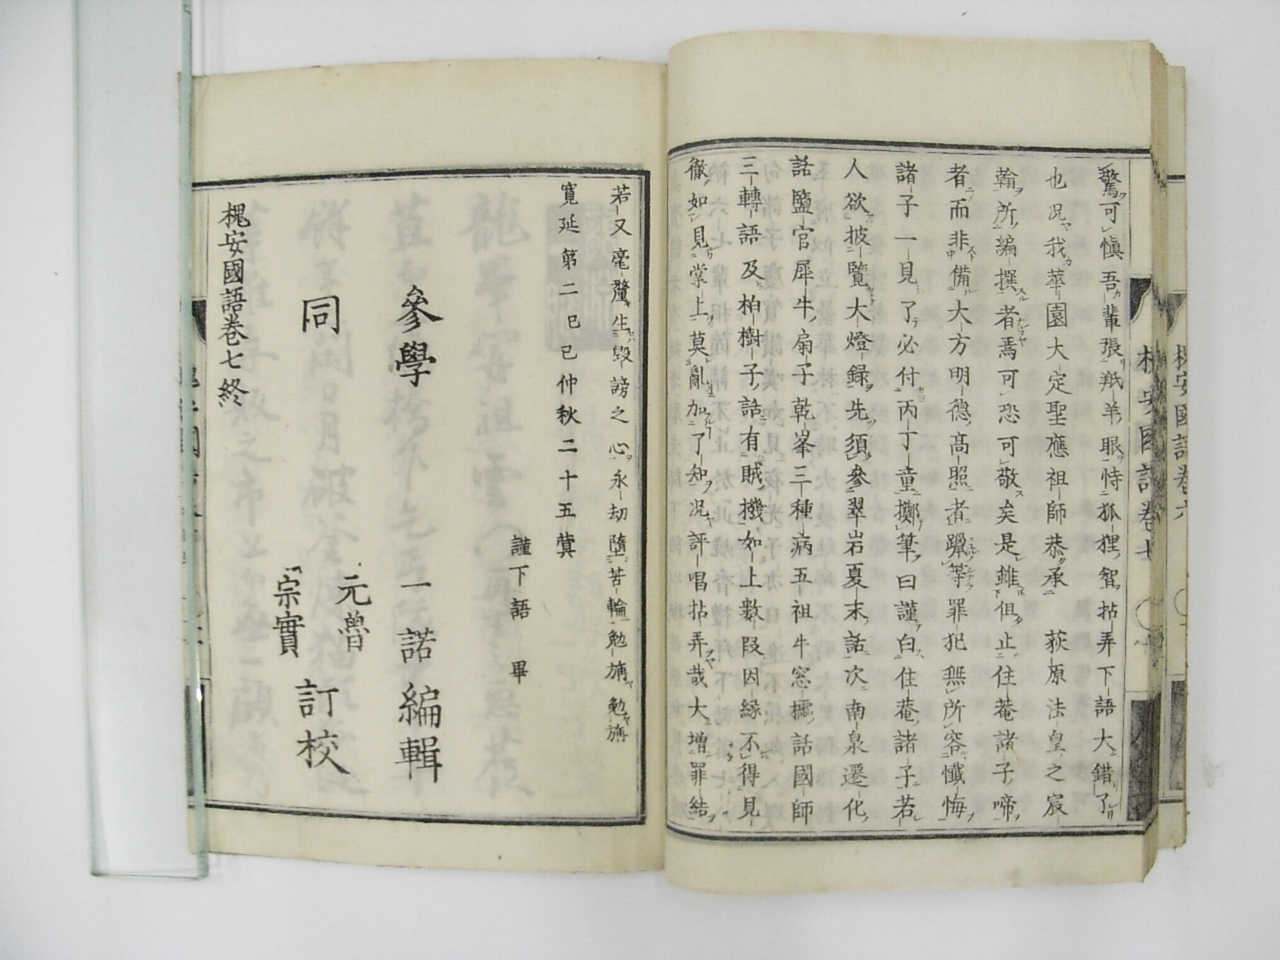 驚可愼吾輩張羝羊眼恃狐狸智拈弄下語大錯了
也况我華園大定聖應祖師恭承 萩原法皇之宸
翰所編撰者焉可恐可敬矣是雖但止住菴諸子啼
者而非備大方明德高照者躐等罪犯無所容懺悔
諸子一見了必付丙丁童擲筆曰謹白住菴諸子若
人欲披覽大燈錄先須參翠岩夏末話次南泉遷化
話鹽官犀牛扇子乾峯三種病五祖牛窓櫺話國師
三轉語及柏樹子話有賊機如上數段因緣不得見
徹如見掌上莫亂加了知况評唱拈弄哉大增罪結
若又毫釐生毀謗之心永劫墮苦輪勉旃勉旃
寬延第二己巳仲秋二十五蓂
謹下語 畢
參學 一諾編輯
同 元魯
宗實 訂校
槐安國語卷七終
槐安國語卷七
槐安國語卷六